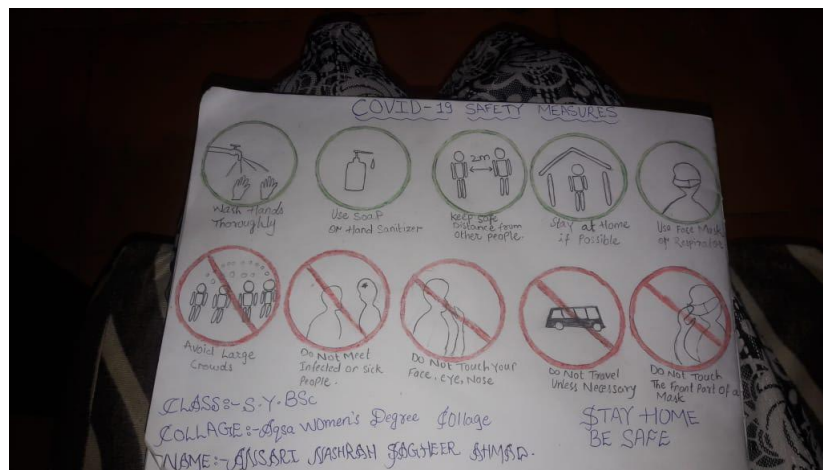 COVID-19 SAFETY MEASURES
2m
Wash Hands
Thoroughly
Use Soap
Or Hand Sanitizer
Keep Safe
Distance from
Other people.
Stay at Home
if Possible
Use Face Mask
or Respirator
Avoid Large
Crowds
Do Not Meet
Infected or sick
People.
DO Not Touch Your
Face, eye, Nose
Do Not Travel
Unless Necessary
DO Not Touch
The Front Part Of a
Mask
CLASS:- S.Y.BSc
COLLAGE:- Aqsa Women's Degree Collage
NAME:- ANSARI NASHRAH SAGHEER AHMAD.
STAY HOME
BE SAFE